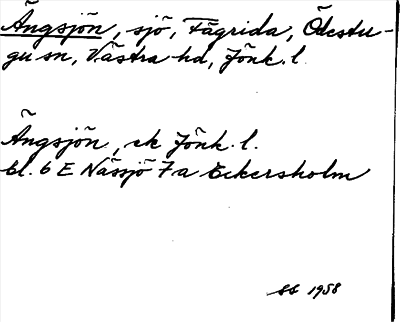 Ängsjön, sjö, Fägrida, Ödestu-
gu sn, Västra hd, Jönk. l.
Ängsjön, ek Jönk. l.
bl. 6 E Nässjö 7 a Eckersholm
SS 1958